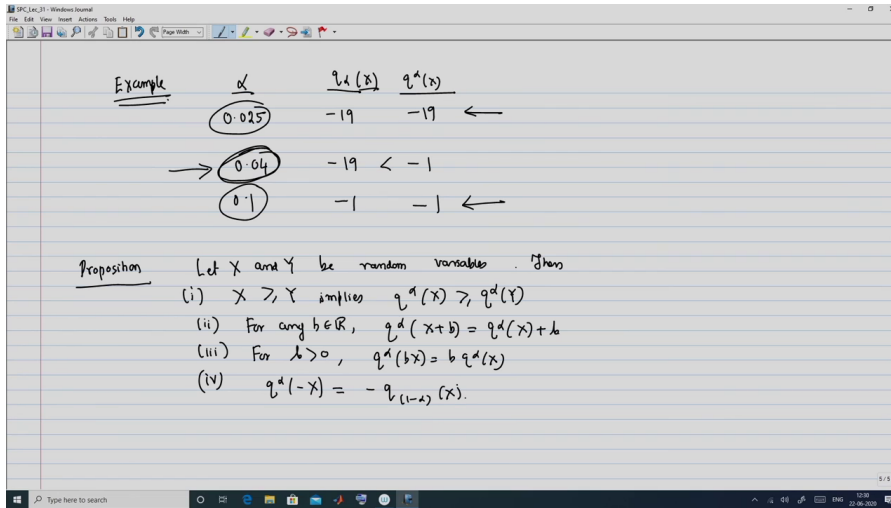 SPC_Lec_31 - Windows Journal
File Edit View Insert Actions Tools Help
Page Width
Example α qα(X) q^α(X)
0.025 -19 -19 ←
→ 0.04 -19 < -1
0.1 -1 -1 ←
Proposition Let X and Y be random variables. Then
(i) X ≥ Y implies q^α(X) ≥ q^α(Y)
(ii) For any b ∈ ℝ, q^α(X+b) = q^α(X)+b
(iii) For b>0, q^α(bX) = b q^α(X)
(iv) q^α(-X) = - q_(1-α)(X).
5/5
Type here to search
ENG
12:30
22-06-2020